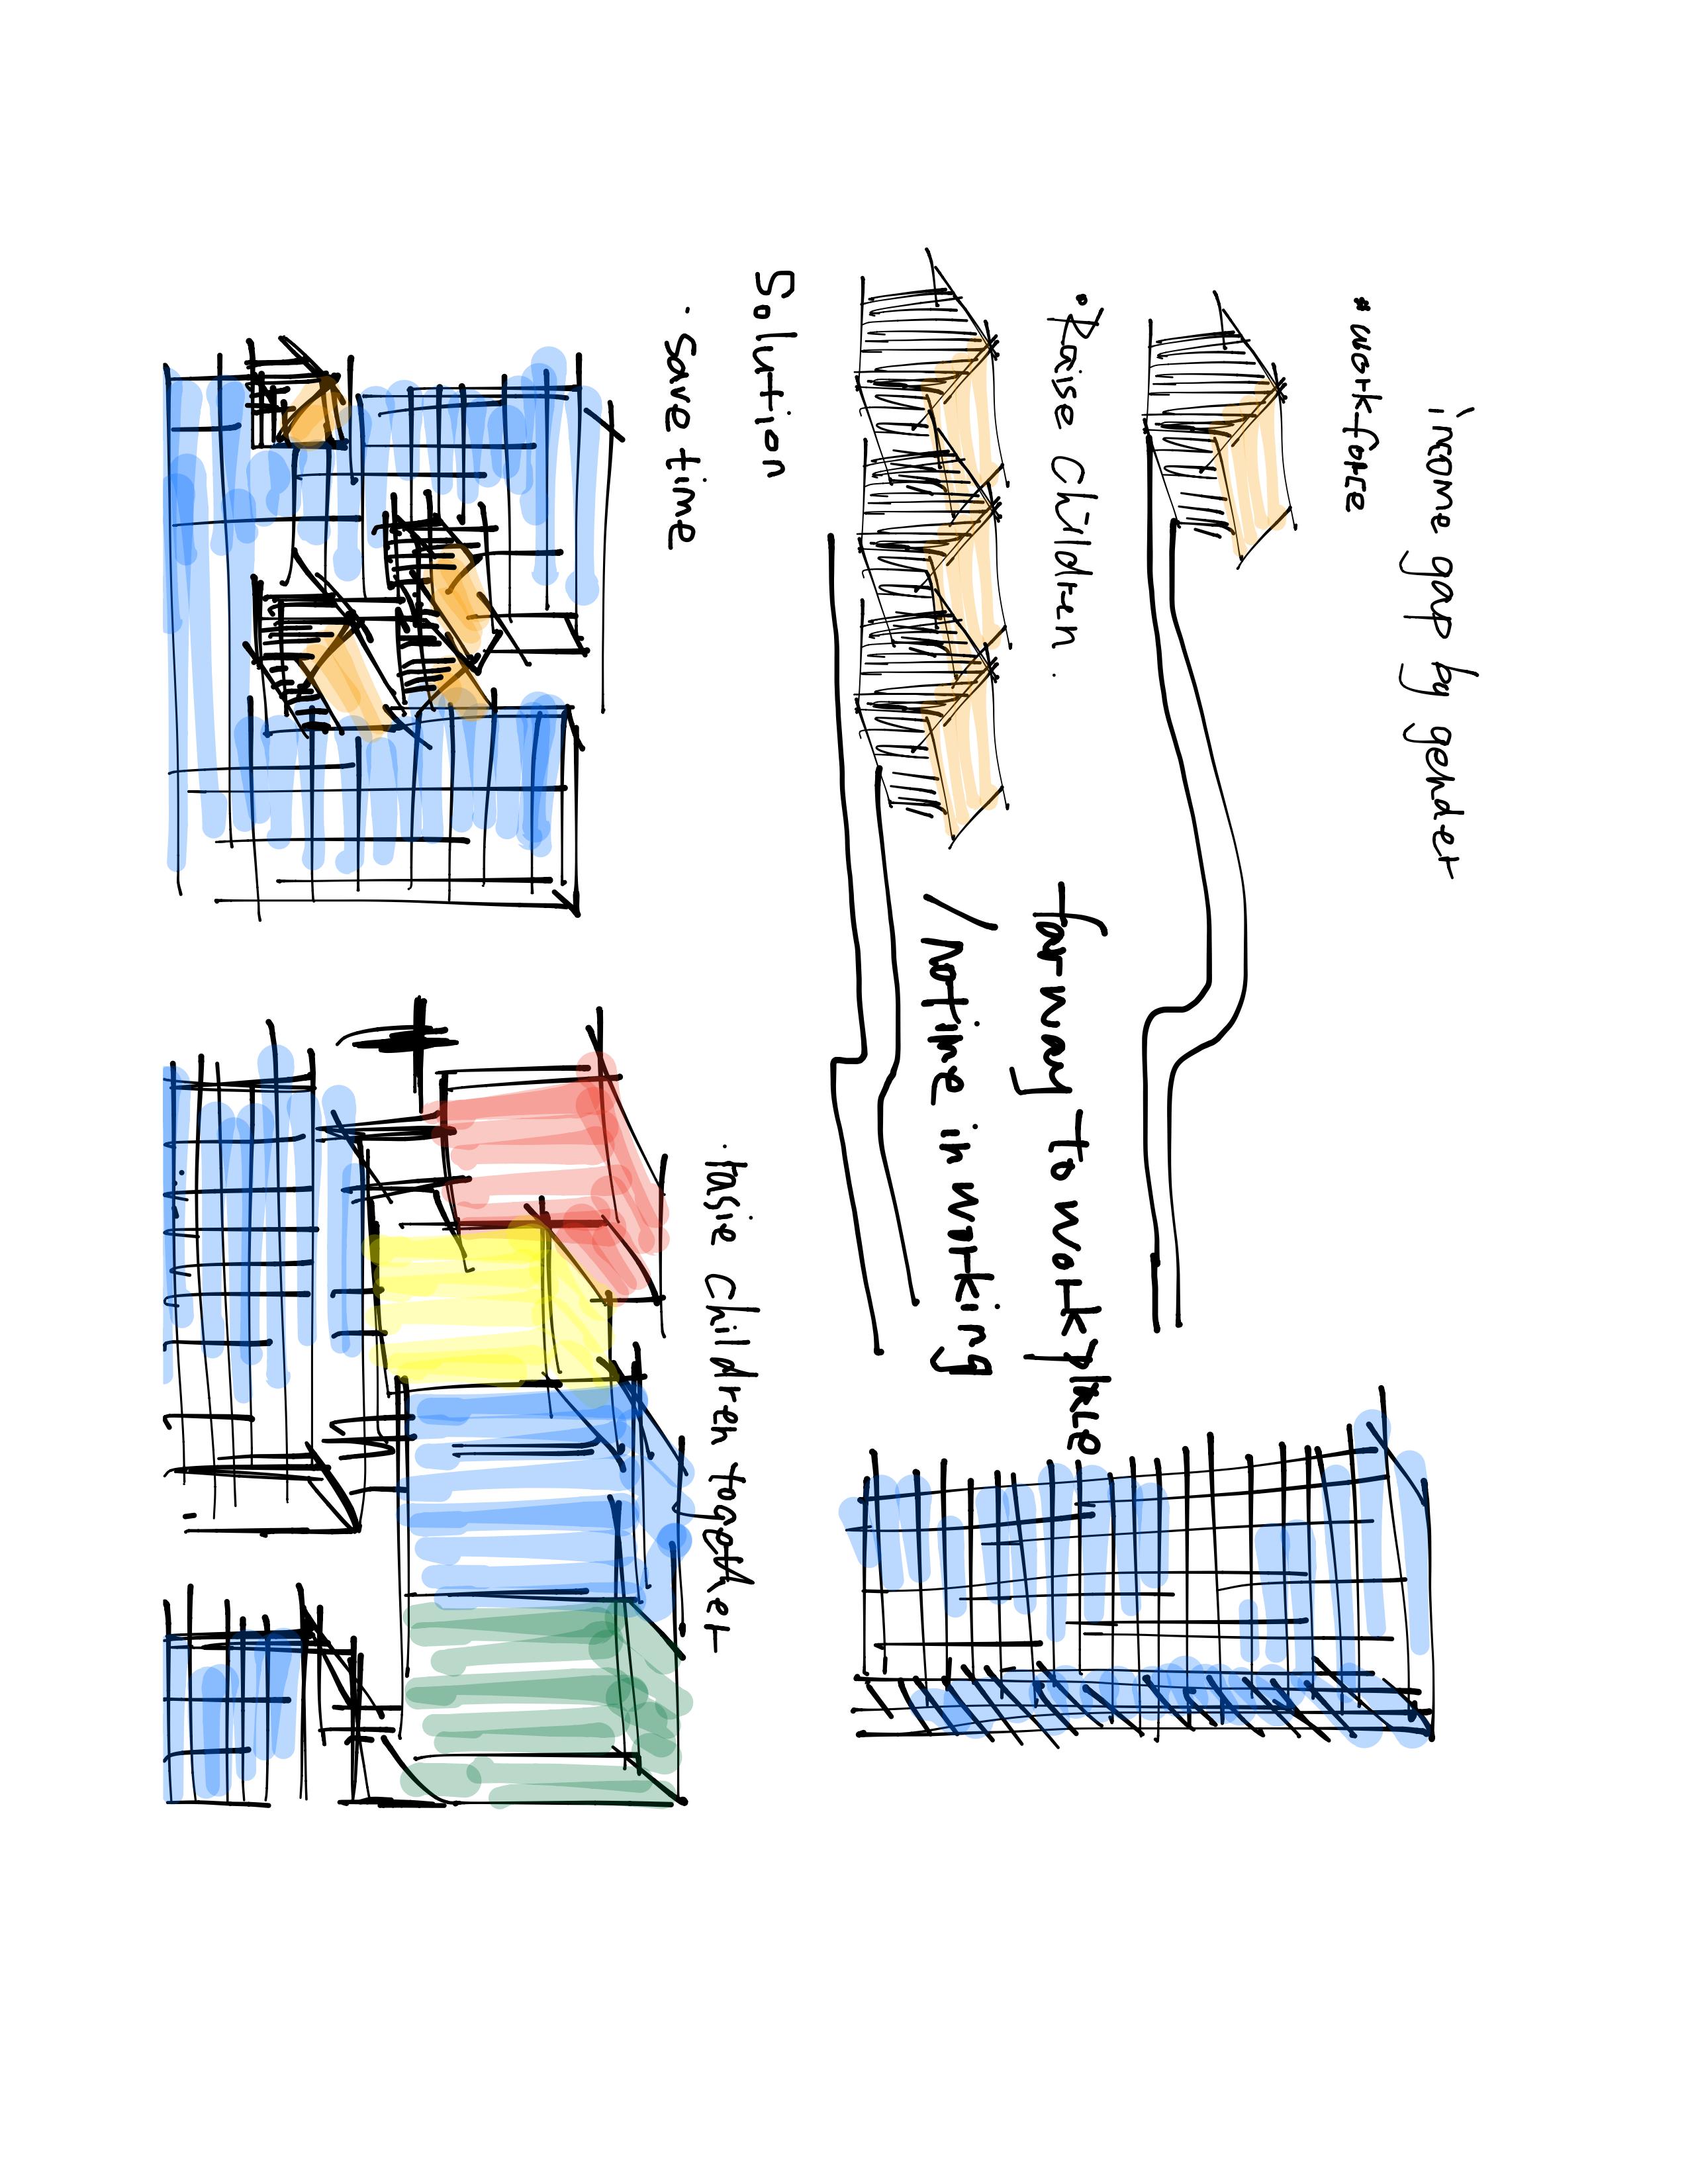 income gap by gender
• workforce
• Raise children.
far way to workplace
/ no time in working
Solution
· save time
· rasie children together